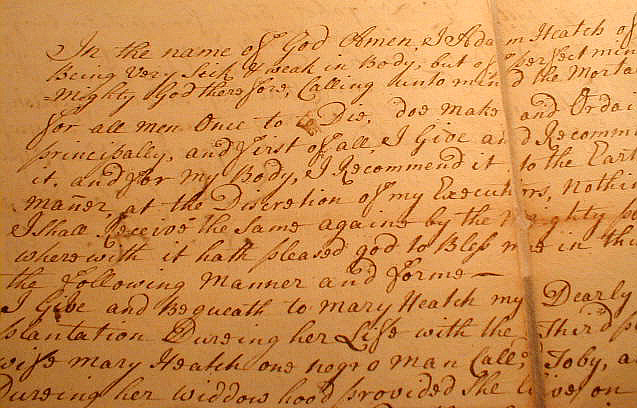 In the name of God Amen, I Adam Heatch of
Being very Sick & weak in Body, but of perfect min
mighty God therefore, Calling unto mind the Morta
for all men Once to to Die, doe make and Ordai
principally, and first of all, I Give and Recomm
it, and for my Body, I Recommend it to the Eart
mañer, at the Discretion of my Executors, Nothi
I Shall Receive the Same againe by the Mighty p
where with it hath pleased god to Bless me in thi
the following manner and forme —
I Give and Bequeath to Mary Heatch my Dearly
plantation Dureing her Life with the Third p
wife mary Heatch one negro man Calld Toby, a
Dureing her widdow hood provided She live on